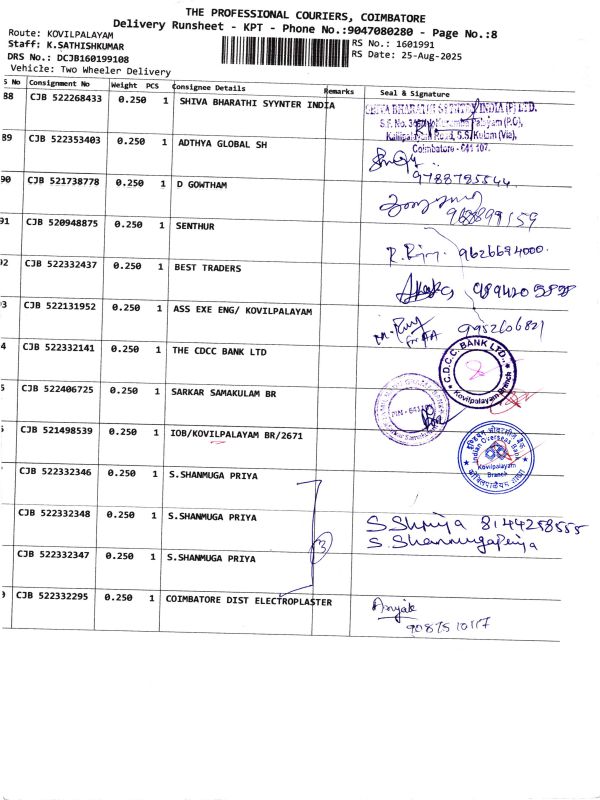 THE PROFESSIONAL COURIERS, COIMBATORE
Delivery Runsheet - KPT - Phone No.:9047080280 - Page No.:8
Route: KOVILPALAYAM
RS No.: 1601991
Staff: K.SATHISHKUMAR
RS Date: 25-Aug-2025
DRS No.: DCJB160199108
Vehicle: Two Wheeler Delivery
S No Consignment No Weight PCS Consignee Details Remarks Seal & Signature
88 CJB 522268433 0.250 1 SHIVA BHARATHI SYYNTER INDIA
SHIVA BHARATHI SYYNTER INDIA (P) LTD.
Coimbatore - 641 107.
89 CJB 522353403 0.250 1 ADTHYA GLOBAL SH
9788795544
90 CJB 521738778 0.250 1 D GOWTHAM
91 CJB 520948875 0.250 1 SENTHUR
9626694000.
92 CJB 522332437 0.250 1 BEST TRADERS
93 CJB 522131952 0.250 1 ASS EXE ENG/ KOVILPALAYAM
9952606821
4 CJB 522332141 0.250 1 THE CDCC BANK LTD
C.D.C.C. BANK LTD.,
Kovilpalayam Branch
5 CJB 522406725 0.250 1 SARKAR SAMAKULAM BR
6 CJB 521498539 1 IOB/KOVILPALAYAM BR/2671
Indian Overseas Bank
Kovilpalayam
Branch
CJB 522332346 0.250 1 S.SHANMUGA PRIYA
CJB 522332348 0.250 1 S.SHANMUGA PRIYA
3
S.Shriya 8144258555
S.ShanmugaPriya
CJB 522332347 0.250 1 S.SHANMUGA PRIYA
CJB 522332295 0.250 1 COIMBATORE DIST ELECTROPLASTER